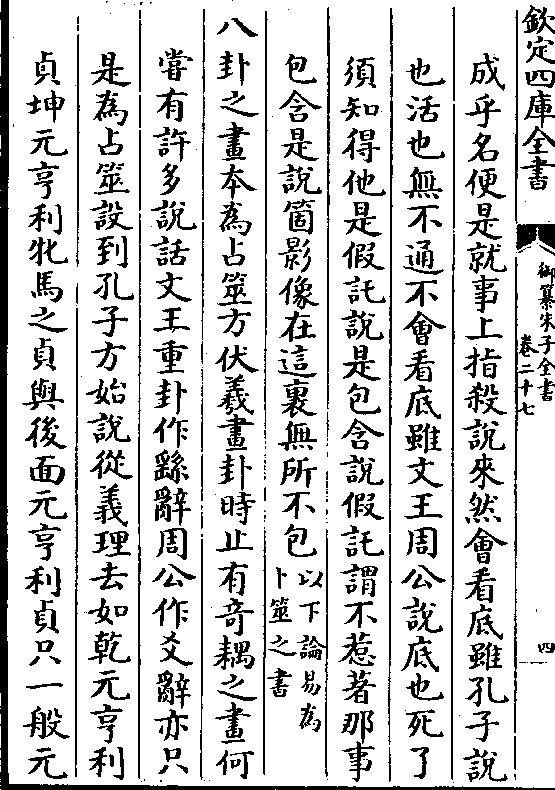 欽定四庫全書
御纂朱子全書
卷二十七
四
成乎名便是就事上指殺說來然會看底雖孔子說
也活也無不通不會看底雖文王周公說底也死了
須知得他是假託說是包含說假託謂不惹著那事
包含是說箇影像在這裏無所不包以下論易為
卜筮之書
八卦之畫本為占筮方伏羲畫卦時止有竒耦之畫何
嘗有許多說話文王重卦作繇辭周公作爻辭亦只
是為占筮設到孔子方始說從義理去如乾元亨利
貞坤元亨利牝馬之貞與後面元亨利貞只一般元